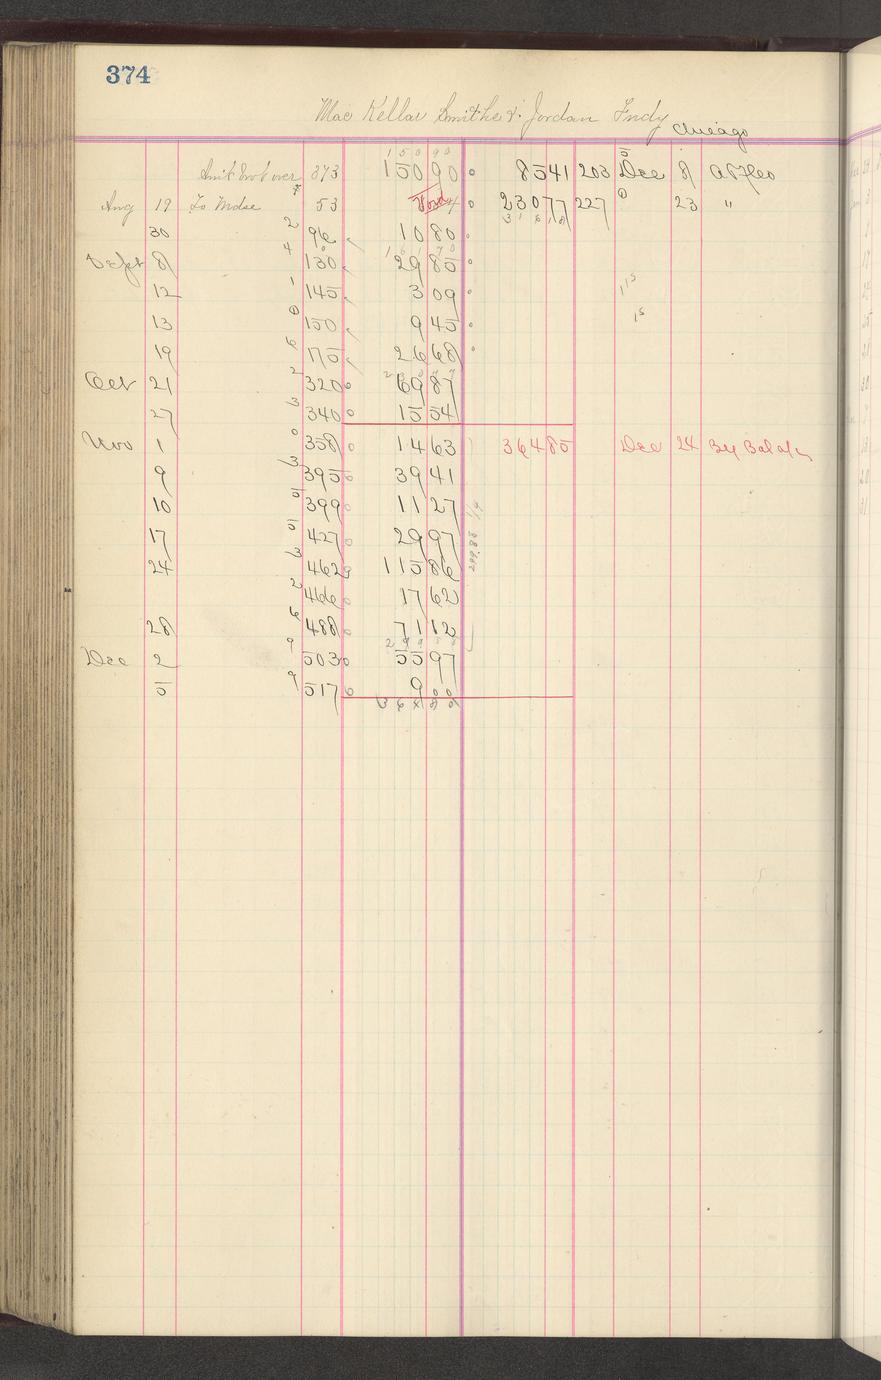 374
Mac Kellar Smith & Jordan Fndy Chicago
1 5 0 9 0
Amt Brot over 373 150 90 85 41 203 5 Dec 8
Aug 19 To Mdse 53 Void 230 77 227 0 23 "
3 1 6 1 8
30 2 96 10 80
1 6 1 7 0
Sept 8 4 130 29 85
12 1 145 3 09
13 0 150 9 45
19 6 175 26 68
Oct 21 2 320 69 87
27 3 340 15 54
Nov 1 0 358 14 63 364 85 Dec 24 By Bal
9 3 395 39 41
10 5 399 11 27
17 5 427 29 97
24 3 462 115 86
2 466 17 62
28 6 488 71 12
Dec 2 9 503 55 97
5 9 517 9 00
3 6 4 8 5